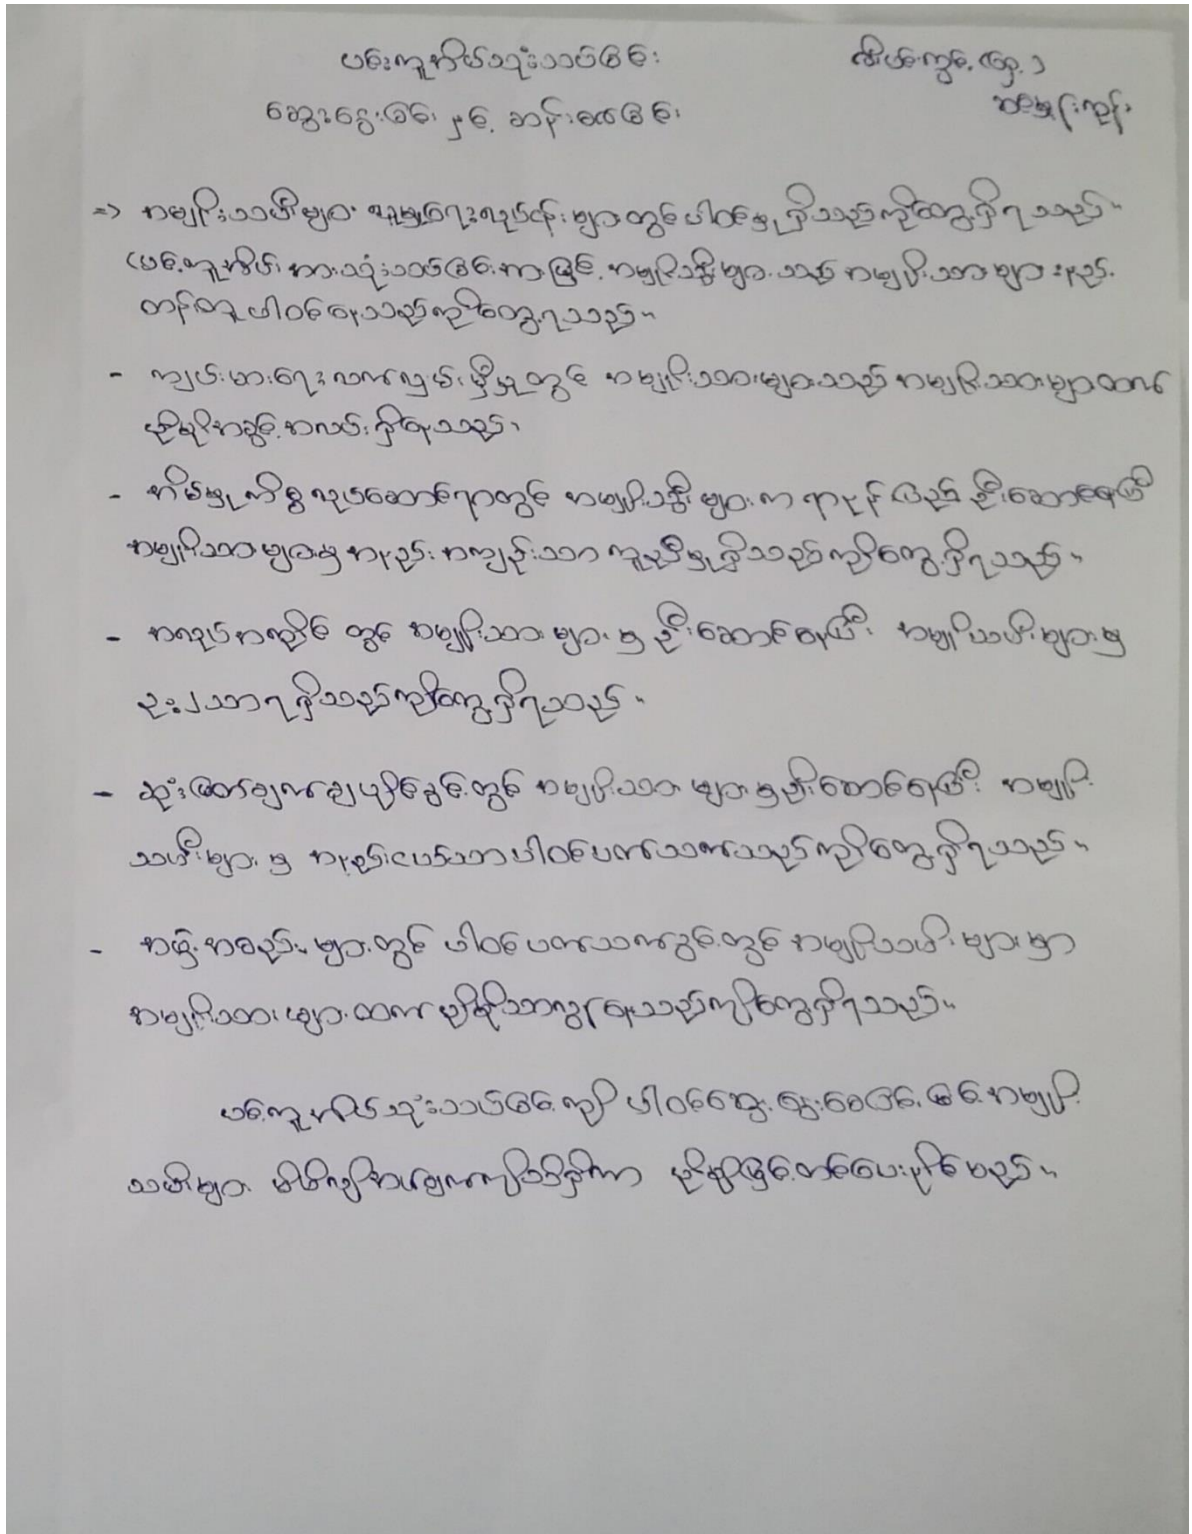 ပင့်ကူအိမ်သုံးသပ်ခြင်း
ဆွေးနွေးခြင်း နှင့် ဆန်းစစ်ခြင်း
=> အမျိုးသမီးများ လူမှုရေးလုပ်ငန်းများတွင် ပါဝင်မှုရှိသည်ကိုတွေ့ရှိရသည်။
(ပင့်ကူအိမ် အားသုံးသပ်ခြင်းအားဖြင့် အမျိုးသမီးများသည် အမျိုးသားများနည်း
တန်းတူပါဝင်နေသည်ကိုတွေ့ရသည်။
- ကျယ်းမာရေး လက်လှမ်းမှီမှုတွင် အမျိုးသားများသည် အမျိုးသားများထက်
ပိုမိုအခွင့်အလမ်းရှိနေသည်၊
- အိမ်မှုကိစ္စလုပ်ဆောင်ရာတွင် အမျိုးသမီးများက ရာနှုန်းပြည့် ဦးဆောင်နေပြီး
အမျိုးသားများမှ အနည်းအကျဉ်းသာ ကူညီမှုရှိသည်ကိုတွေ့ရှိရသည်။
- အလုပ်အကိုင် တွင် အမျိုးသားများမှ ဦးဆောင်နေပြီး အမျိုးသမီးများမှ
သာရှိသည်ကိုတွေ့ရှိရသည်။
- ဆုံးဖြတ်ချက်ချပိုင်ခွင့်တွင် အမျိုးသားများမှဦးဆောင်နေပြီး အမျိုး
သမီးများမှ အနည်းငယ်သာပါဝင်ပတ်သက်သည်ကိုတွေ့ရှိရသည်။
- အဖွဲ့အစည်းများတွင် ပါဝင်ပတ်သက်ခွင့်တွင် အမျိုးသမီးများမှာ
အမျိုးသားများထက် ပိုမိုသာလွန်နေသည်ကိုတွေ့ရှိရသည်။
ပင့်ကူအိမ်သုံးသပ်ခြင်းကို ပါဝင်ဆွေးနွေးစေခြင်းဖြင့် အမျိုး
သမီးများ မိမိကိုယ်အချက်ကိုသိရှိကာ ပိုမိုမြှင့်တင်ပေးနိုင်မည်။